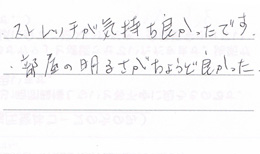 ・ストレッチが気持ち良かったです。
・部屋の明るさがちょうど良かった